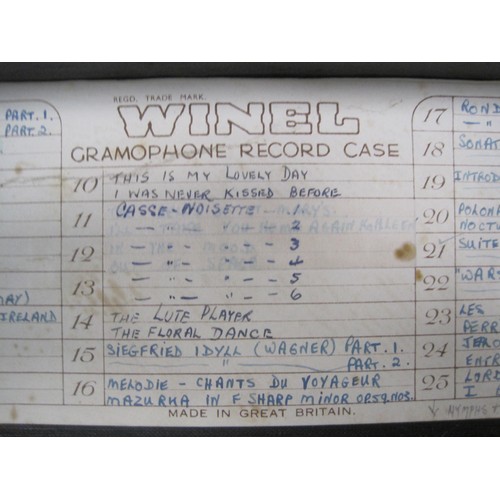 REGD. TRADE MARK.
WINEL
GRAMOPHONE RECORD CASE
PART. 1.
PART. 2.
MAY)
IRELAND
10 THIS IS MY LOVELY DAY
I WAS NEVER KISSED BEFORE
11 CASSE-NOISETTE 1
— " — " — 2
12 — " — " — 3
— " — " — 4
13 — " — " — 5
— " — " — 6
14 THE LUTE PLAYER
THE FLORAL DANCE
15 SIEGFRIED IDYLL (WAGNER) PART. 1.
" PART. 2.
16 MELODIE - CHANTS DU VOYAGEUR
MAZURKA IN F SHARP MINOR OP.59.NO3.
MADE IN GREAT BRITAIN.
17 ROND
— "
18 SONAT
19 INTROD
20 POLONA
NOCTU
21 SUITE
22 "WAR
23 LES
24 JERO
ENTR
25 LORD
I